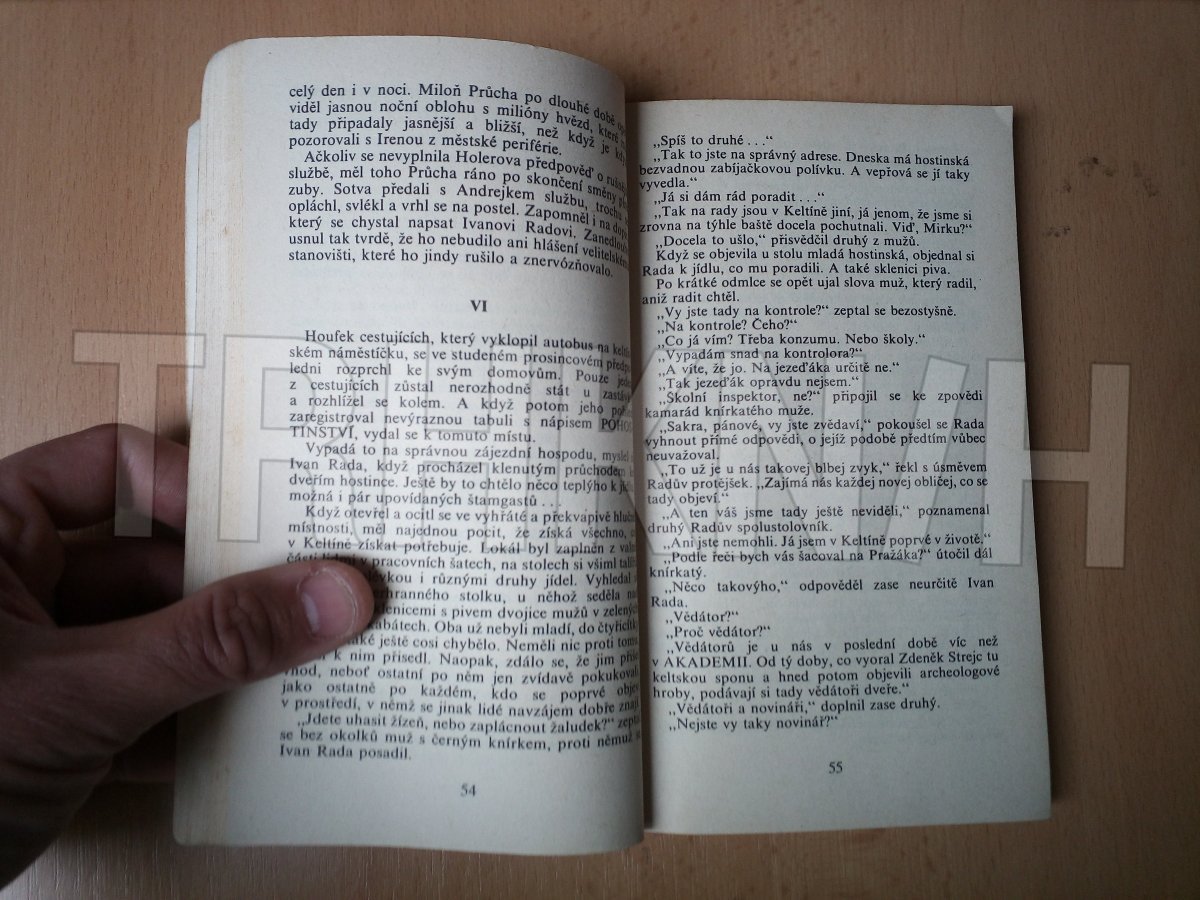 celý den i v noci. Miloň Průcha po dlouhé době
viděl jasnou noční oblohu s milióny hvězd, které
tady připadaly jasnější a bližší, než když je
pozorovali s Irenou z městské periférie.
Ačkoliv se nevyplnila Holerova předpověď o
službě, měl toho Průcha ráno po skončení směny
zuby. Sotva předali s Andrejkem službu, trochu
opláchl, svlékl a vrhl se na postel. Zapomněl i na
který se chystal napsat Ivanovi Radovi. Zanedlouho
usnul tak tvrdě, že ho nebudilo ani hlášení velitelském
stanovišti, které ho jindy rušilo a znervózňovalo.
VI
Houfek cestujících, který vyklopil autobus na
ském náměstíčku, se ve studeném prosincovém
ledni rozprchl ke svým domovům. Pouze
z cestujících zůstal nerozhodně stát u
a rozhlížel se kolem. A když potom jeho
zaregistroval nevýraznou tabuli s nápisem POHOS-
TINSTVÍ, vydal se k tomuto místu.
Vypadá to na správnou zájezdní hospodu, myslel
Ivan Rada, když procházel klenutým průchodem
dveřím hostince. Ještě by to chtělo něco teplýho k
možná i pár upovídaných štamgastů . . .
Když otevřel a ocitl se ve vyhřáté a překvapivě
místnosti, měl najednou pocit, že získá všechno,
v Keltíně získat potřebuje. Lokál byl zaplněn z
části lidmi v pracovních šatech, na stolech si všiml
i různými druhy jídel. Vyhledal
stolku, u něhož seděla
s pivem dvojice mužů v zelených
kabátech. Oba už nebyli mladí, do
ještě cosi chybělo. Neměli nic proti
k nim přisedl. Naopak, zdálo se, že jim
vhod, neboť ostatní po něm jen zvídavě pokukovali
jako ostatně po každém, kdo se poprvé
v prostředí, v němž se jinak lidé navzájem dobře
„Jdete uhasit žízeň, nebo zaplácnout žaludek?“
se bez okolků muž s černým knírkem, proti němuž
Ivan Rada posadil.
54
„Spíš to druhé . . .“
„Tak to jste na správný adrese. Dneska má hostinská
bezvadnou zabíjačkovou polívku. A vepřová se jí taky
vyvedla.“
„Já si dám rád poradit . . .“
„Tak na rady jsou v Keltíně jiní, já jenom, že jsme si
zrovna na týhle baště docela pochutnali. Viď, Mirku?“
„Docela to ušlo,“ přisvědčil druhý z mužů.
Když se objevila u stolu mladá hostinská, objednal si
Rada k jídlu, co mu poradili. A také sklenici piva.
Po krátké odmlce se opět ujal slova muž, který radil,
aniž radit chtěl.
„Vy jste tady na kontrole?“ zeptal se bezostyšně.
„Na kontrole? Čeho?“
„Co já vím? Třeba konzumu. Nebo školy.“
„Vypadám snad na kontrolora?“
„A víte, že jo. Na jezeďáka určitě ne.“
„Tak jezeďák opravdu nejsem.“
„Školní inspektor, ne?“ připojil se ke zpovědi
kamarád knírkatého muže.
„Sakra, pánové, vy jste zvědaví,“ pokoušel se Rada
vyhnout přímé odpovědi, o jejíž podobě předtím vůbec
neuvažoval.
„To už je u nás takovej blbej zvyk,“ řekl s úsměvem
Radův protějšek. „Zajímá nás každej novej obličej, co se
tady objeví.“
„A ten váš jsme tady ještě neviděli,“ poznamenal
druhý Radův spolustolovník.
„Ani jste nemohli. Já jsem v Keltíně poprvé v životě.“
„Podle řeči bych vás šacoval na Pražáka?“ útočil dál
knírkatý.
„Něco takovýho,“ odpověděl zase neurčitě Ivan
Rada.
„Vědátor?“
„Proč vědátor?“
„Vědátorů je u nás v poslední době víc než
v AKADEMII. Od tý doby, co vyoral Zdeněk Strejc tu
keltskou sponu a hned potom objevili archeologové
hroby, podávají si tady vědátoři dveře.“
„Vědátoři a novináři,“ doplnil zase druhý.
„Nejste vy taky novinář?“
55